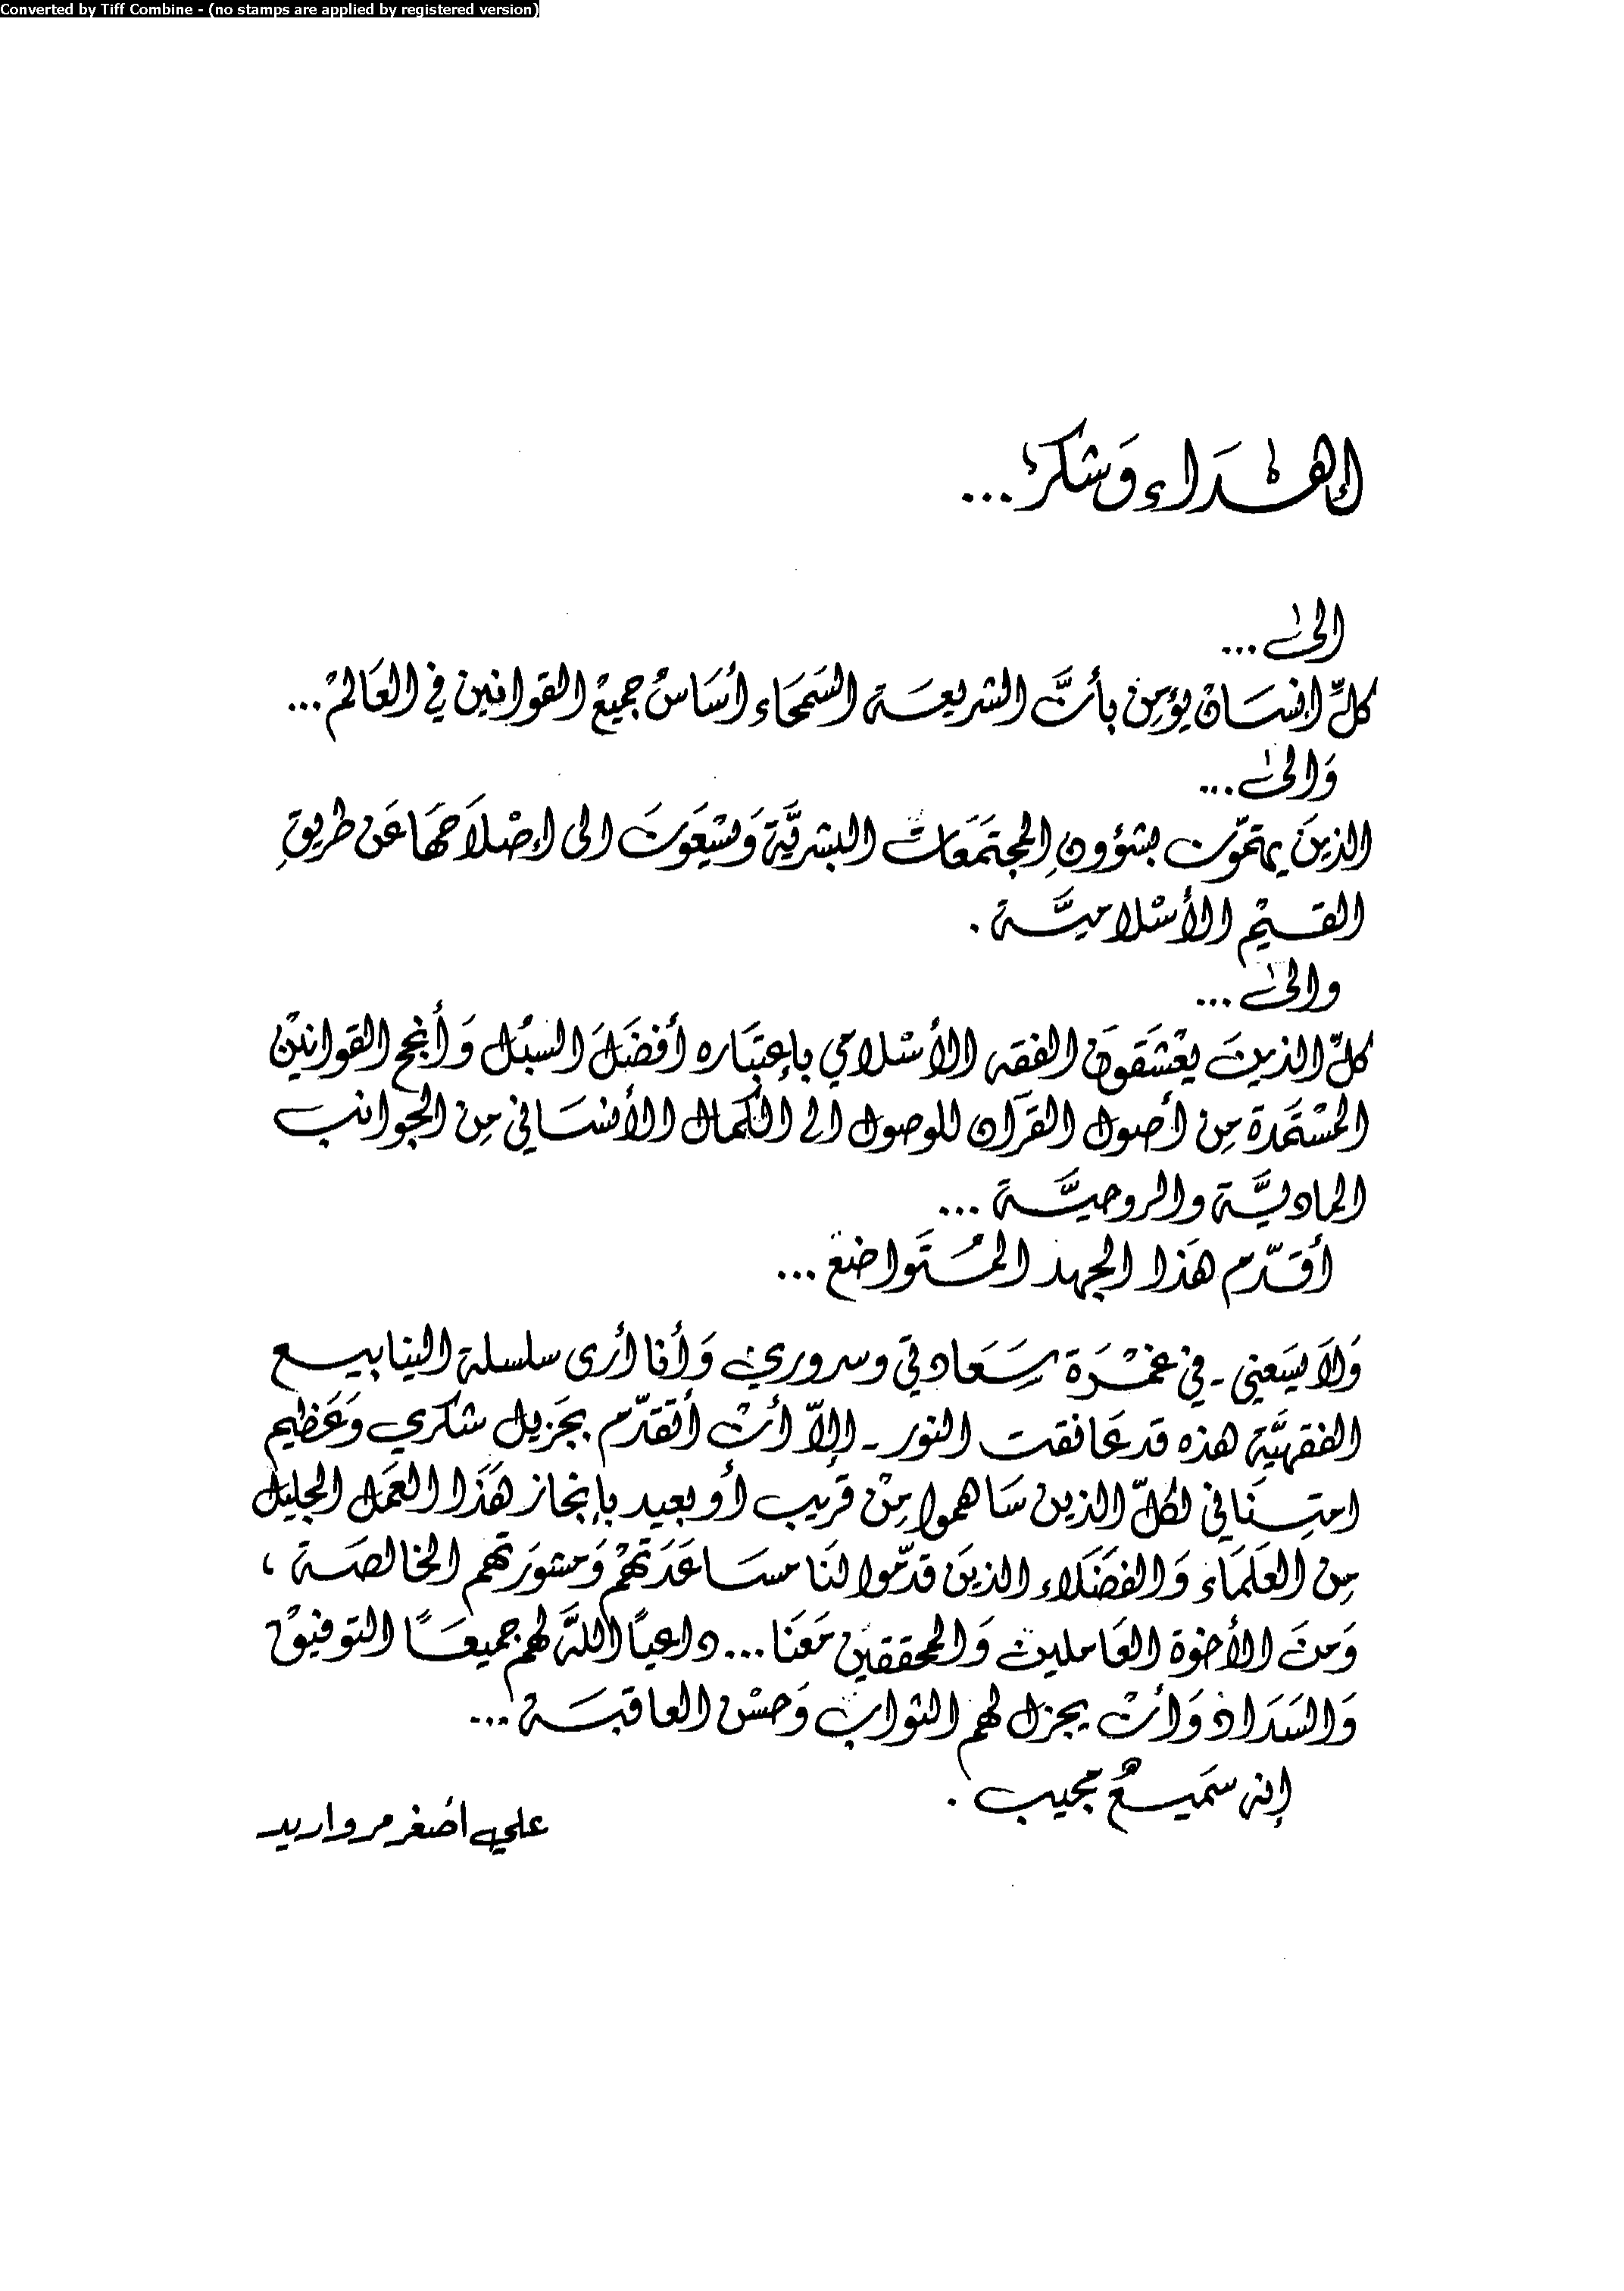 Converted by Tiff Combine - (no stamps are applied by registered version)
إهْدَاء وَشكرْ ...
الىٰ ...
كلِّ انسَان يؤمِن بأنَّ الشريعَة السَمحَاء أسَاسُ جميعْ القوانين في العَالمْ ...
وَالىٰ ...
الذينَ يهتمّون بشؤونِ المجتَمَعات البشريَّة وَيسْعَونَ الى إصْلاَحهَا عَن طريقِ
القيمْ الأسْلاميَّة .
والىٰ ...
كلّ الذينَ يعْشَقونَ الفقه الأسْلامي بإعتبَاره أفضَلَ السبُل وَأنجح القوانينْ
المسْتَمدة مِن أصول القرَآن للوصول الى الكمال الأنسَاني مِن الجوانب
الماديَّة والروحيَّة ...
أقدّم هَذا الجهد المُتَواضع ...
وَلاَ يسَعني - في غمْرَة سَعَادتي وسروري وَأنا أرى سلسلة الينابيع
الفقهيَّة هذه قد عَانقت النور - إلاّ أنْ أتقدّم بجَزيل شكري وَعَظيم
امتِنَاني لكلّ الذين سَاهموا مِنْ قريب أو بعيد بإنجاز هَذا العَمل الجليل
مِن العلَمَاء وَالفضَلاء الذينَ قدّموا لنَا مسَاعَدَتهْم وَمشورَتهم الخالصَة ،
وَمنَ الأخوة العَاملين وَالمحققينَ مَعَنا ... داعياً اللَّه لهم جميعًا التوفيقْ
وَالسَدَاد وَأنْ يجزل لهم الثوابْ وَحسْن العاقبَة ...
إنه سَميعٌ مجيب .
علي أصْغر مرواريد